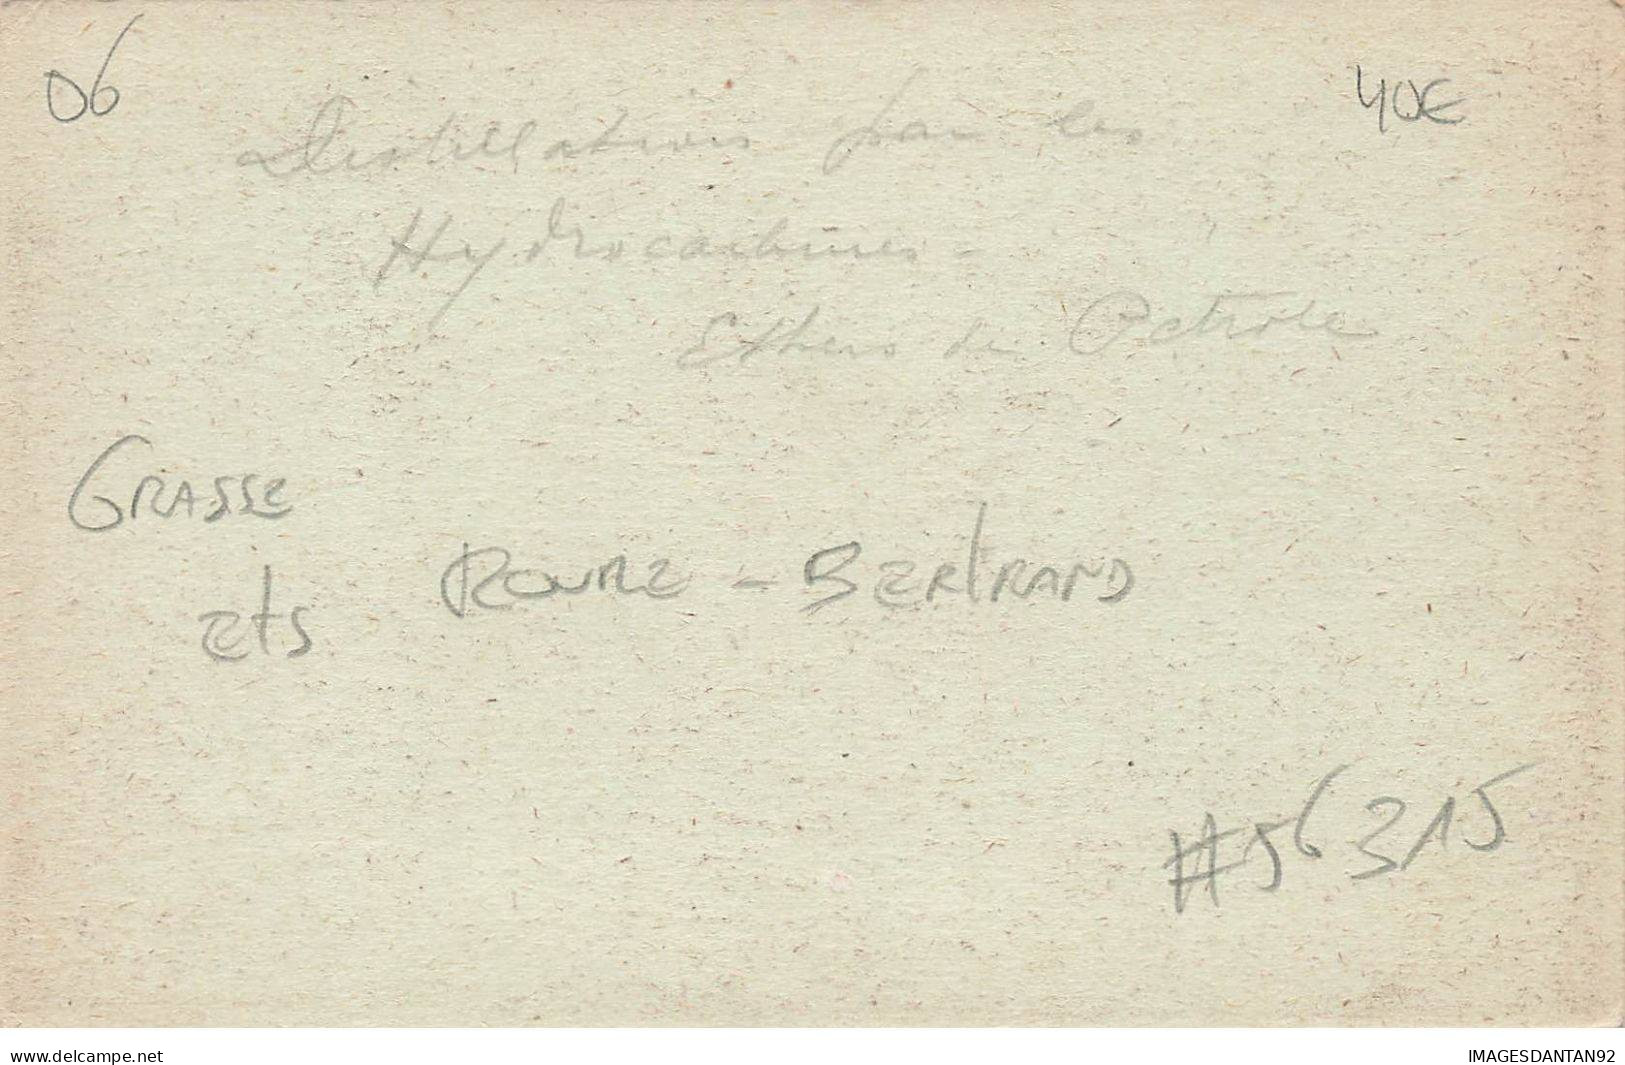 06 40€
Distillation par les
Hydrocarbures -
Ethers de Petrole
GRASSE
ets ROURE - BERTRAND
#56315
delcampe.net IMAGESDANTAN92